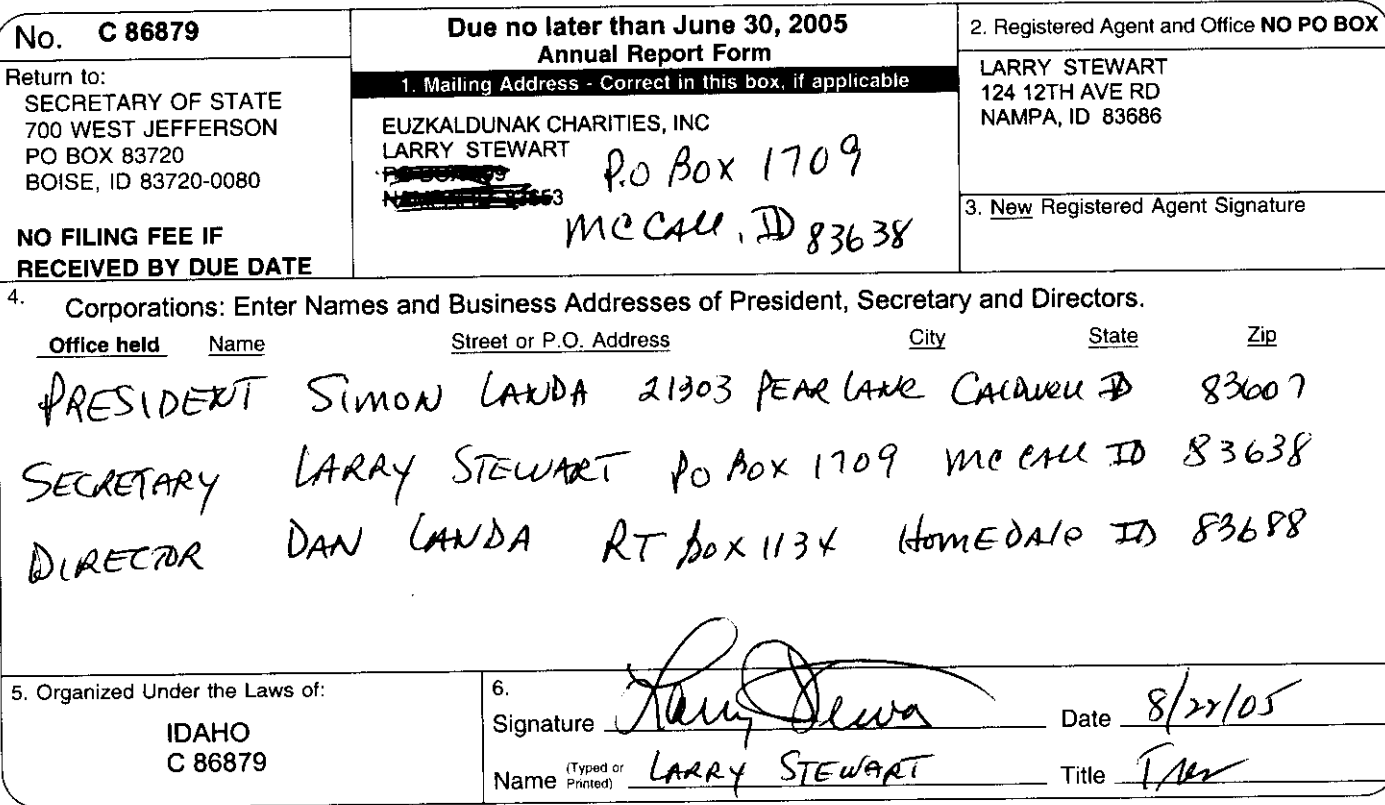 No. C 86879
Return to:
SECRETARY OF STATE
700 WEST JEFFERSON
PO BOX 83720
BOISE, ID 83720-0080
NO FILING FEE IF
RECEIVED BY DUE DATE
Due no later than June 30, 2005
Annual Report Form
1. Mailing Address - Correct in this box, if applicable
EUZKALDUNAK CHARITIES, INC
LARRY STEWART
P.O Box 1709
McCall, ID 83638
2. Registered Agent and Office NO PO BOX
LARRY STEWART
124 12TH AVE RD
NAMPA, ID 83686
3. New Registered Agent Signature
4. Corporations: Enter Names and Business Addresses of President, Secretary and Directors.
Office held Name Street or P.O. Address City State Zip
PRESIDENT SIMON LANDA 21303 PEAR LANE CALDWELL ID 83607
SECRETARY LARRY STEWART PO BOX 1709 McCALL ID 83638
DIRECTOR DAN LANDA RT BOX 1134 HOMEDALE ID 83688
5. Organized Under the Laws of:
IDAHO
C 86879
6.
Signature Larry Stewart Date 8/22/05
Name (Typed or Printed) LARRY STEWART Title